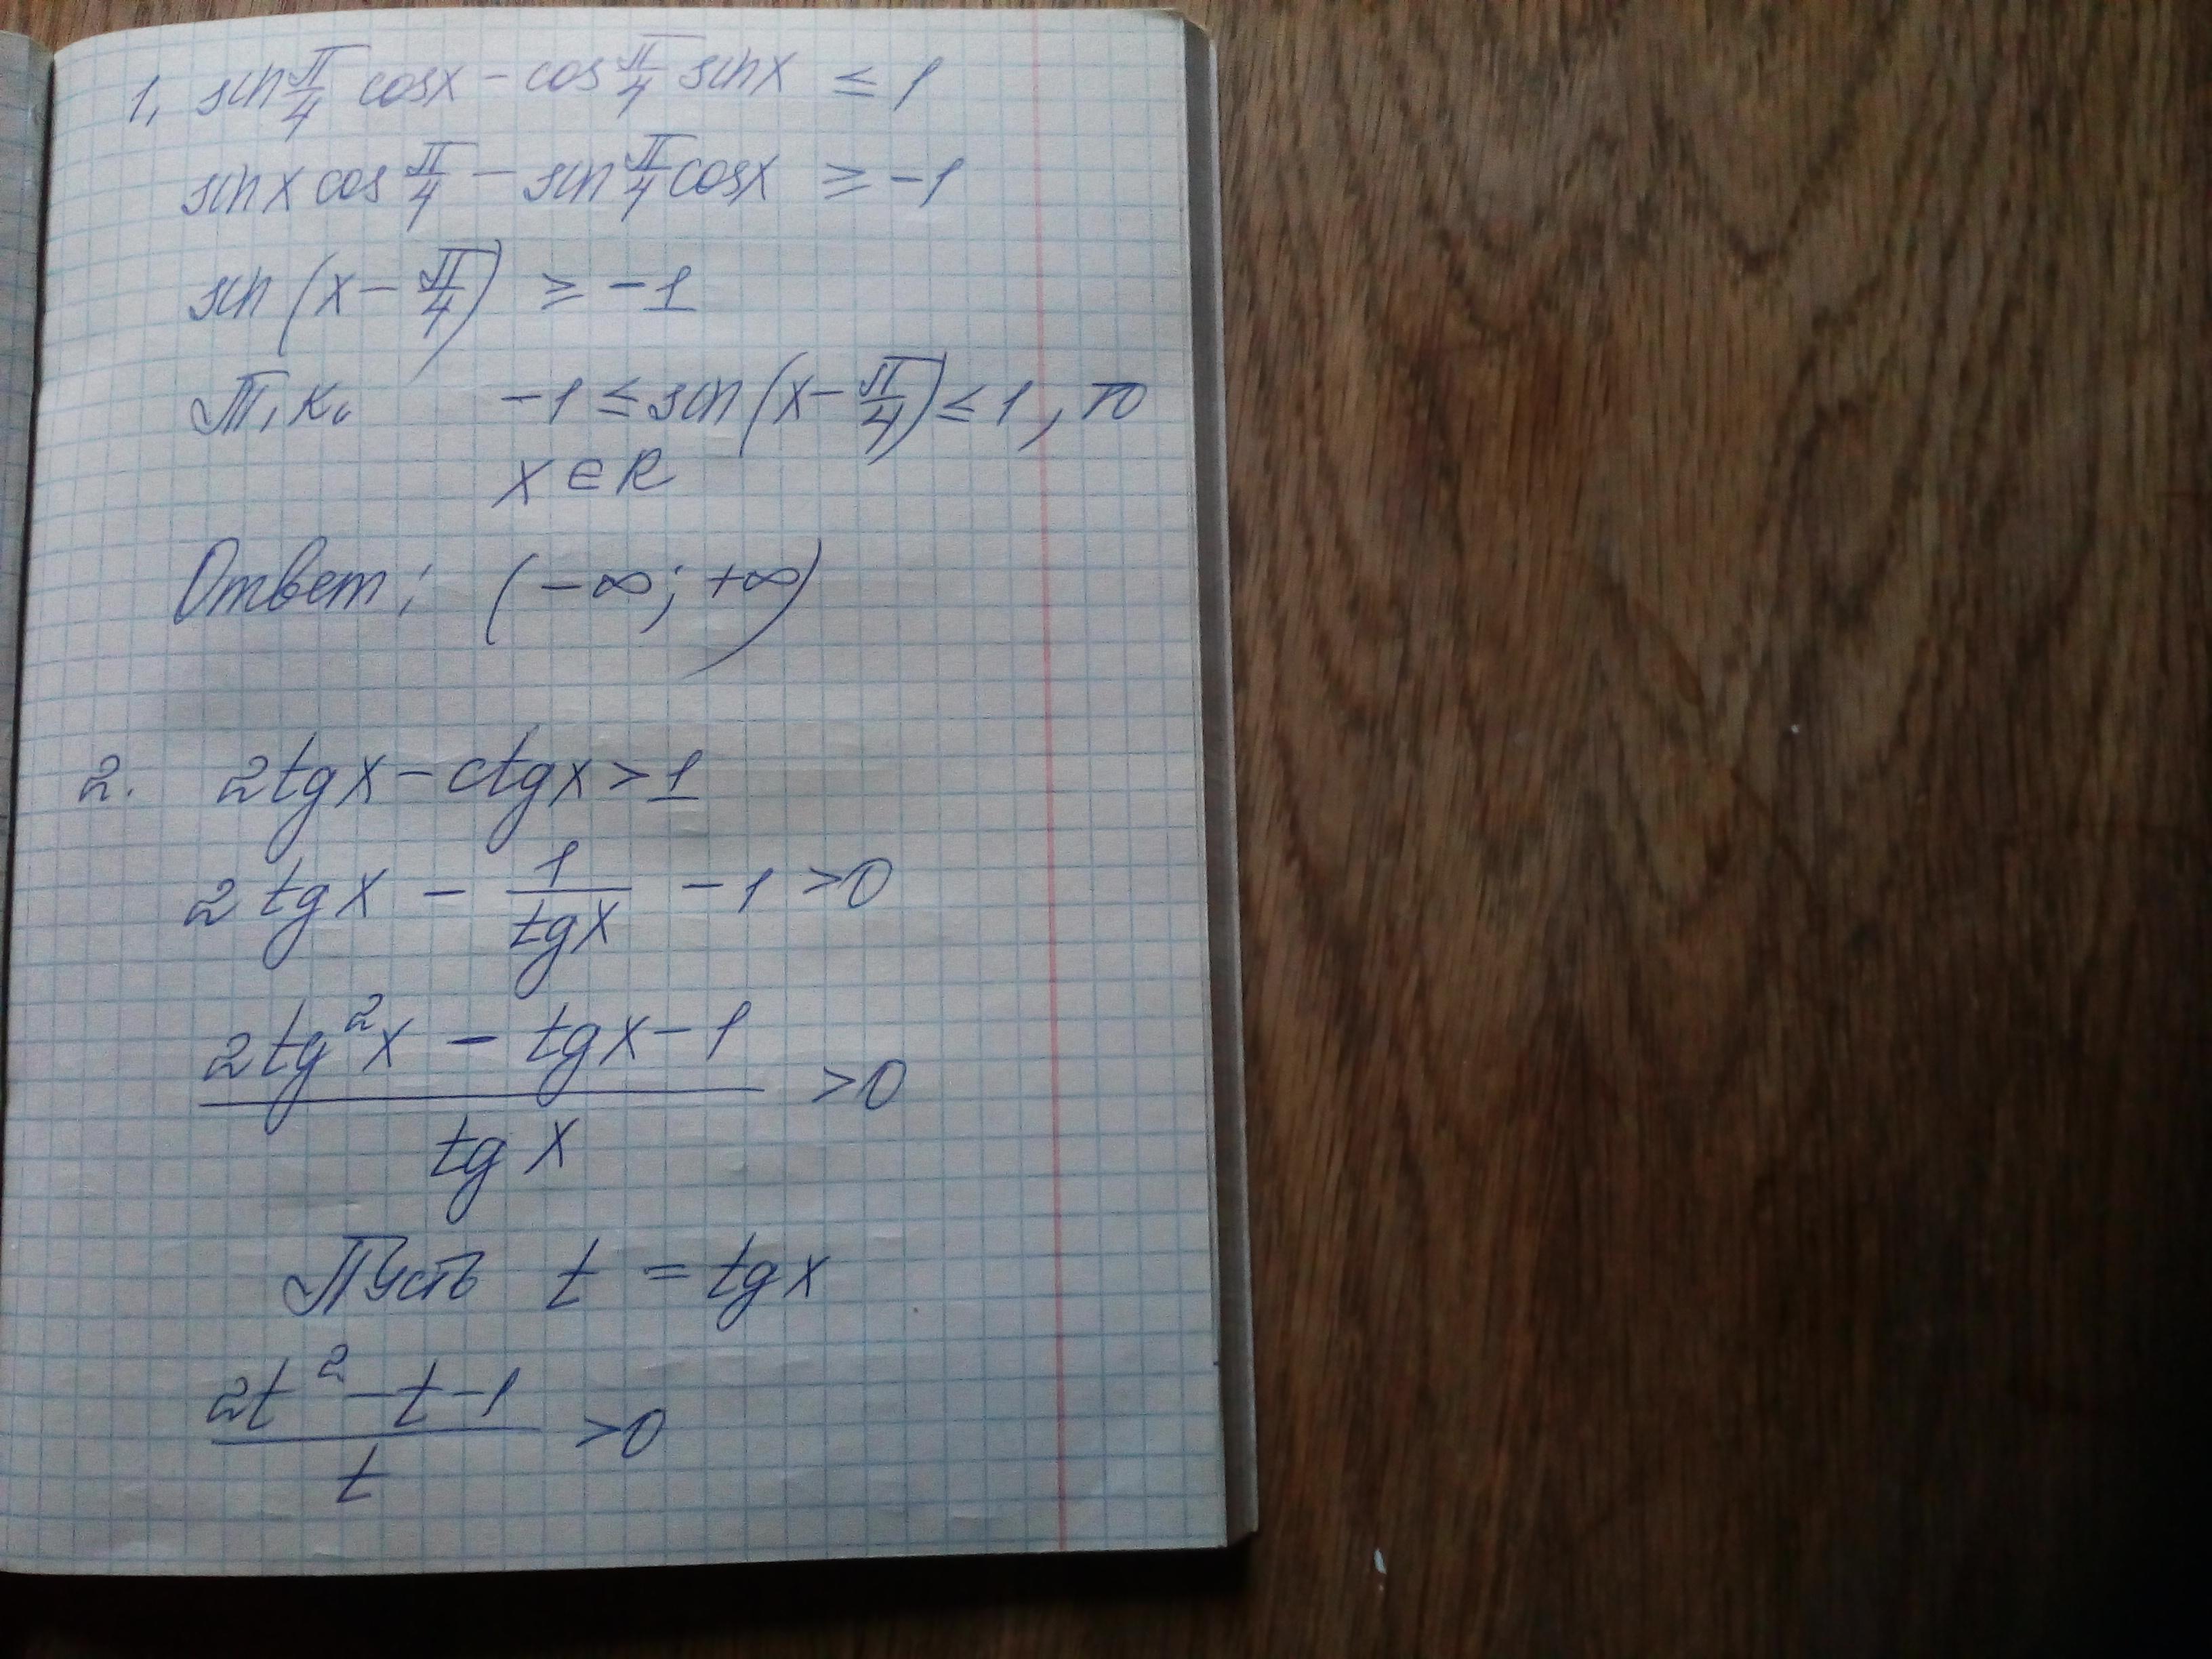 1. sin π/4 cosx - cos π/4 sinx ≤ 1
sinx cos π/4 - sin π/4 cosx ≥ -1
sin (x - π/4) ≥ -1
Т.к. -1 ≤ sin (x - π/4) ≤ 1, то
x ∈ R
Ответ: (-∞; +∞)
2. 2tgx - ctgx > 1
2 tgx - 1/tgx - 1 > 0
(2tg²x - tgx - 1)/tgx > 0
Пусть t = tgx
(2t² - t - 1)/t > 0